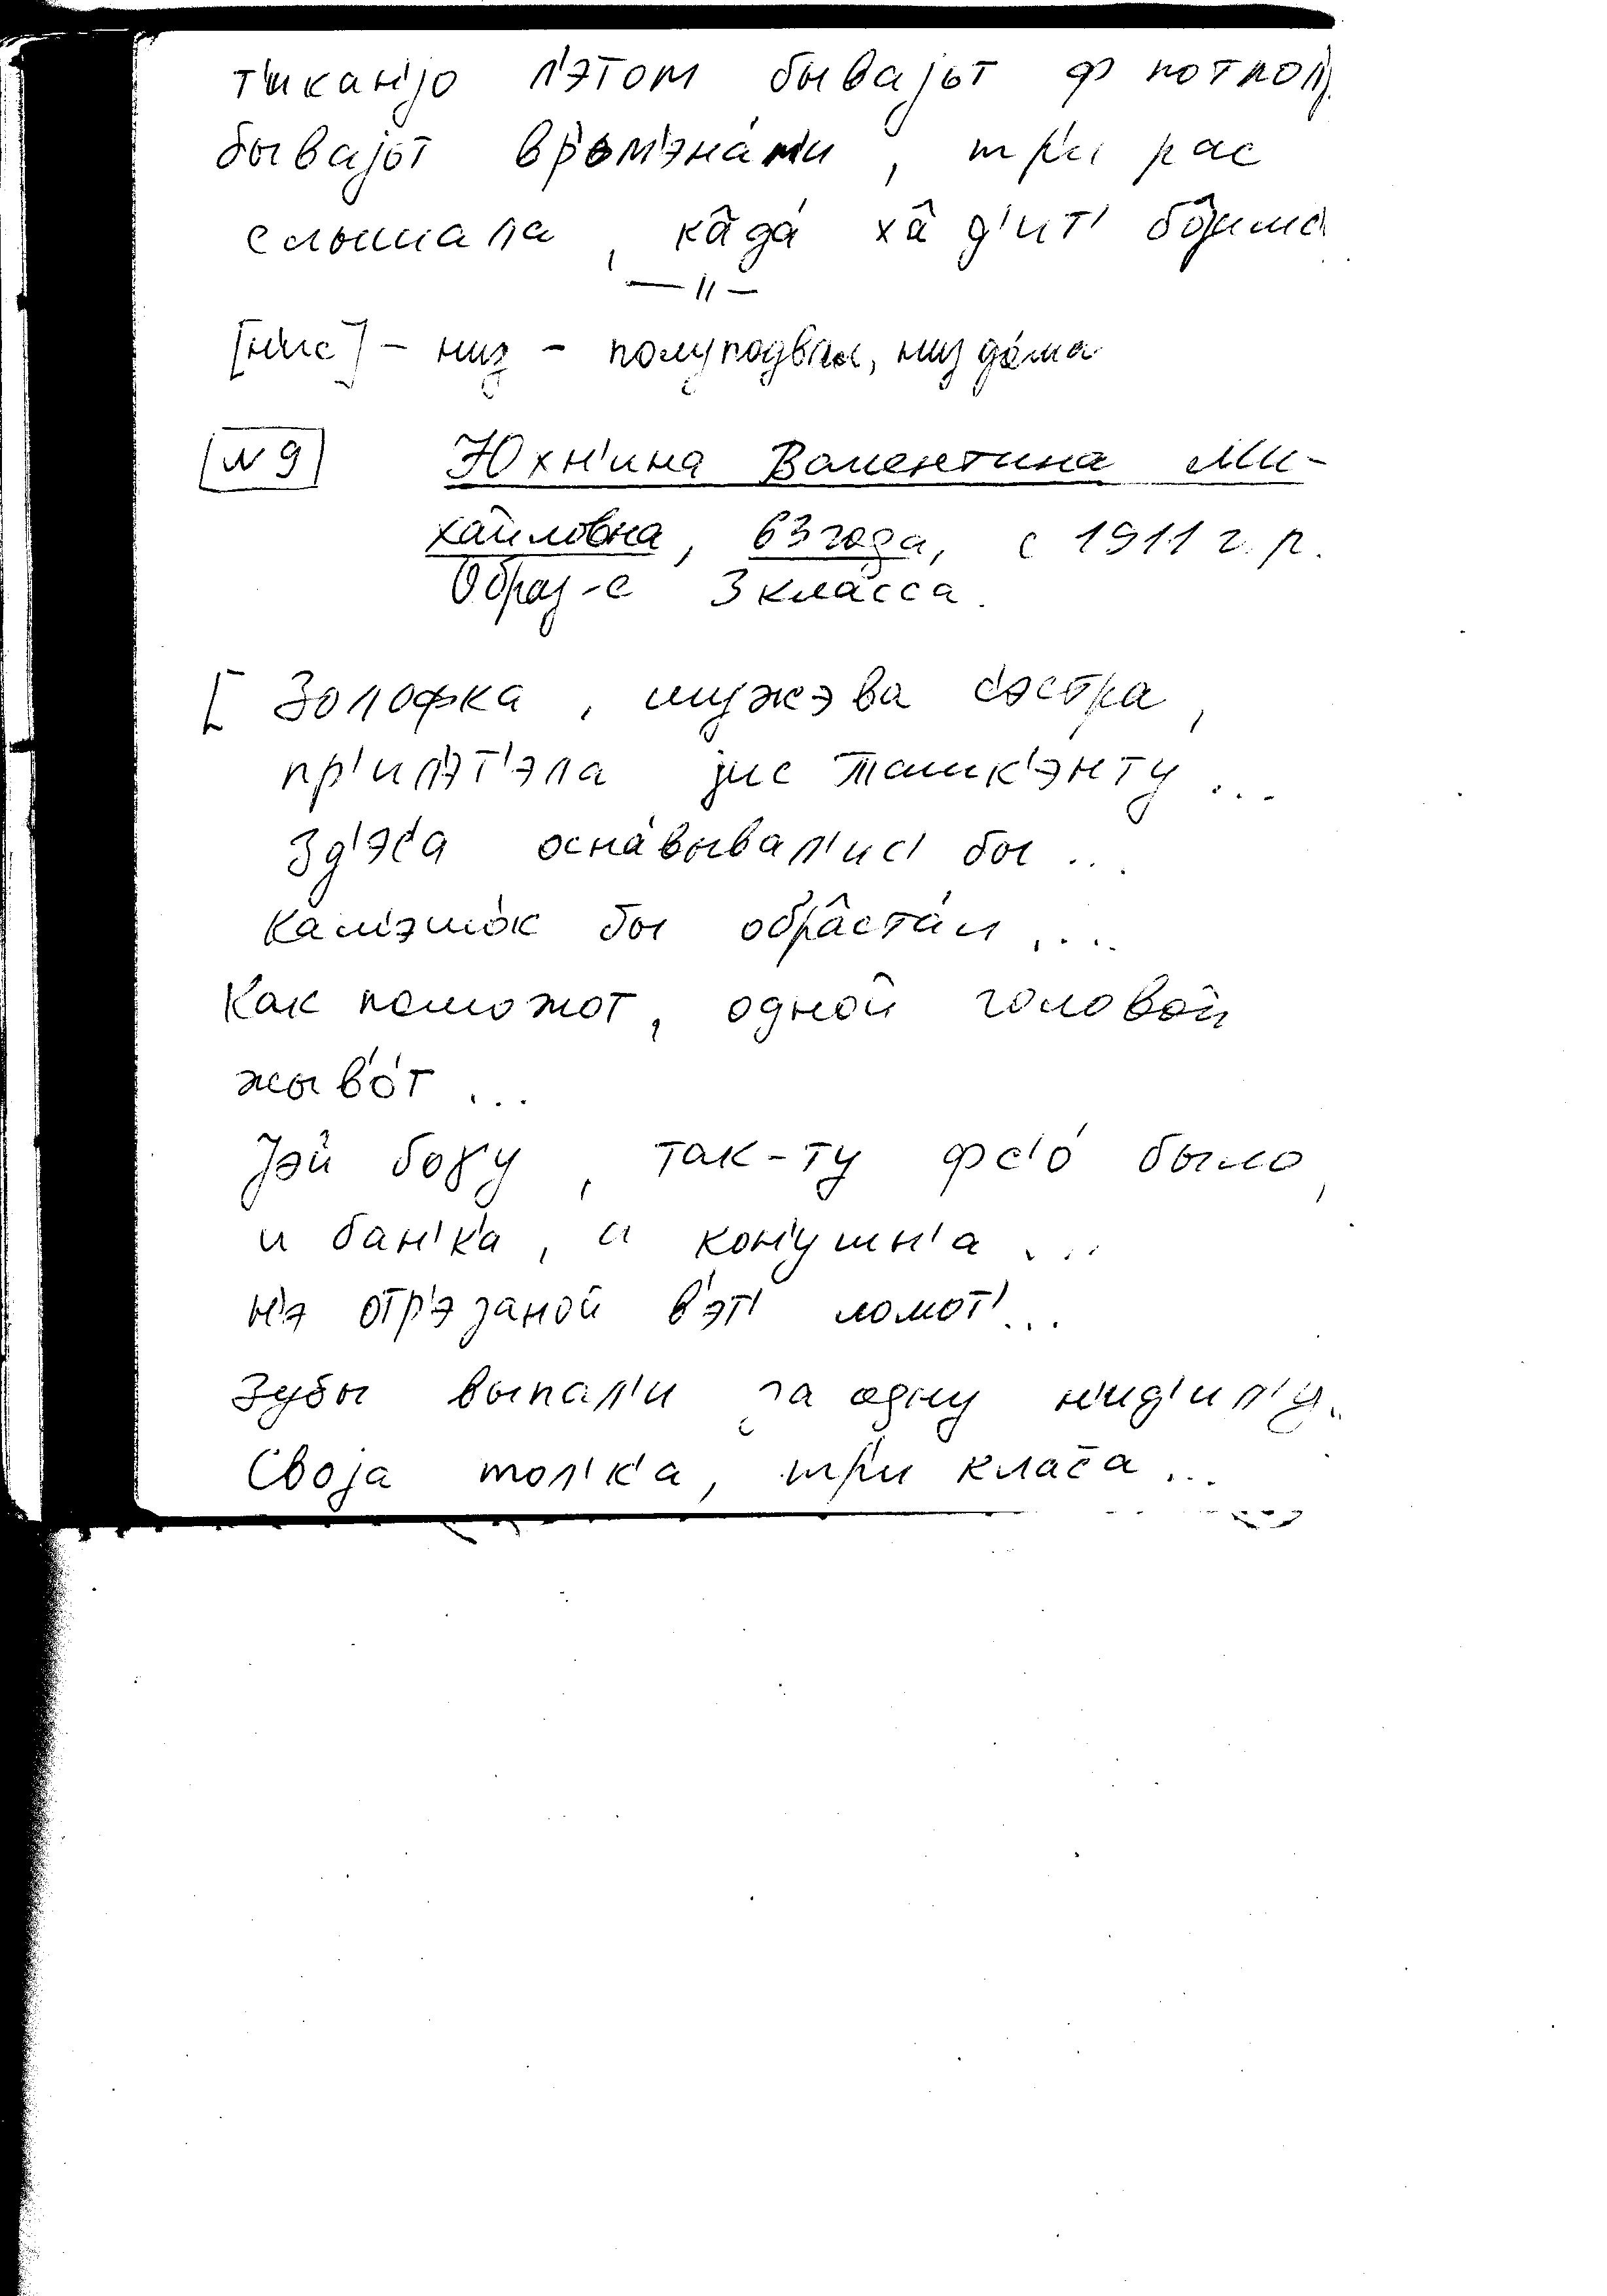 т'икан'јо л'этом бывајот ф потпол'
бывајот вр'ом'эна́м'и, тр'и рас
слышала, ка̂да́ ха̂д'ит' бо̂јимс'
— 〃 —
[н'ис] – низ – полуподвал, низ до́ма
№ 9 Юхн'ина Валентина Ми-
хайловна, 63 года, с 1911 г. р.
Образ-е 3 класса.
[ Золофка, мужэва с'эстра,
пр'ил'эт'эла јис Ташк'энту ...
Зд'эс'а осна́вывал'ис' бы ...
кам'эшо́к бы обра̂ста́л ...
Как поможот, одной головой
жыв'о́т ...
Јэй боɣу, так-ту фс'о́ было,
и бан'к'а, и кон'ушн'а ...
н'э отр'эзаной в'эт' ломот' ...
Зубы выпал'и за одну н'ид'ил'у..
Своја тол'к'а, тр'и клас̄а ...